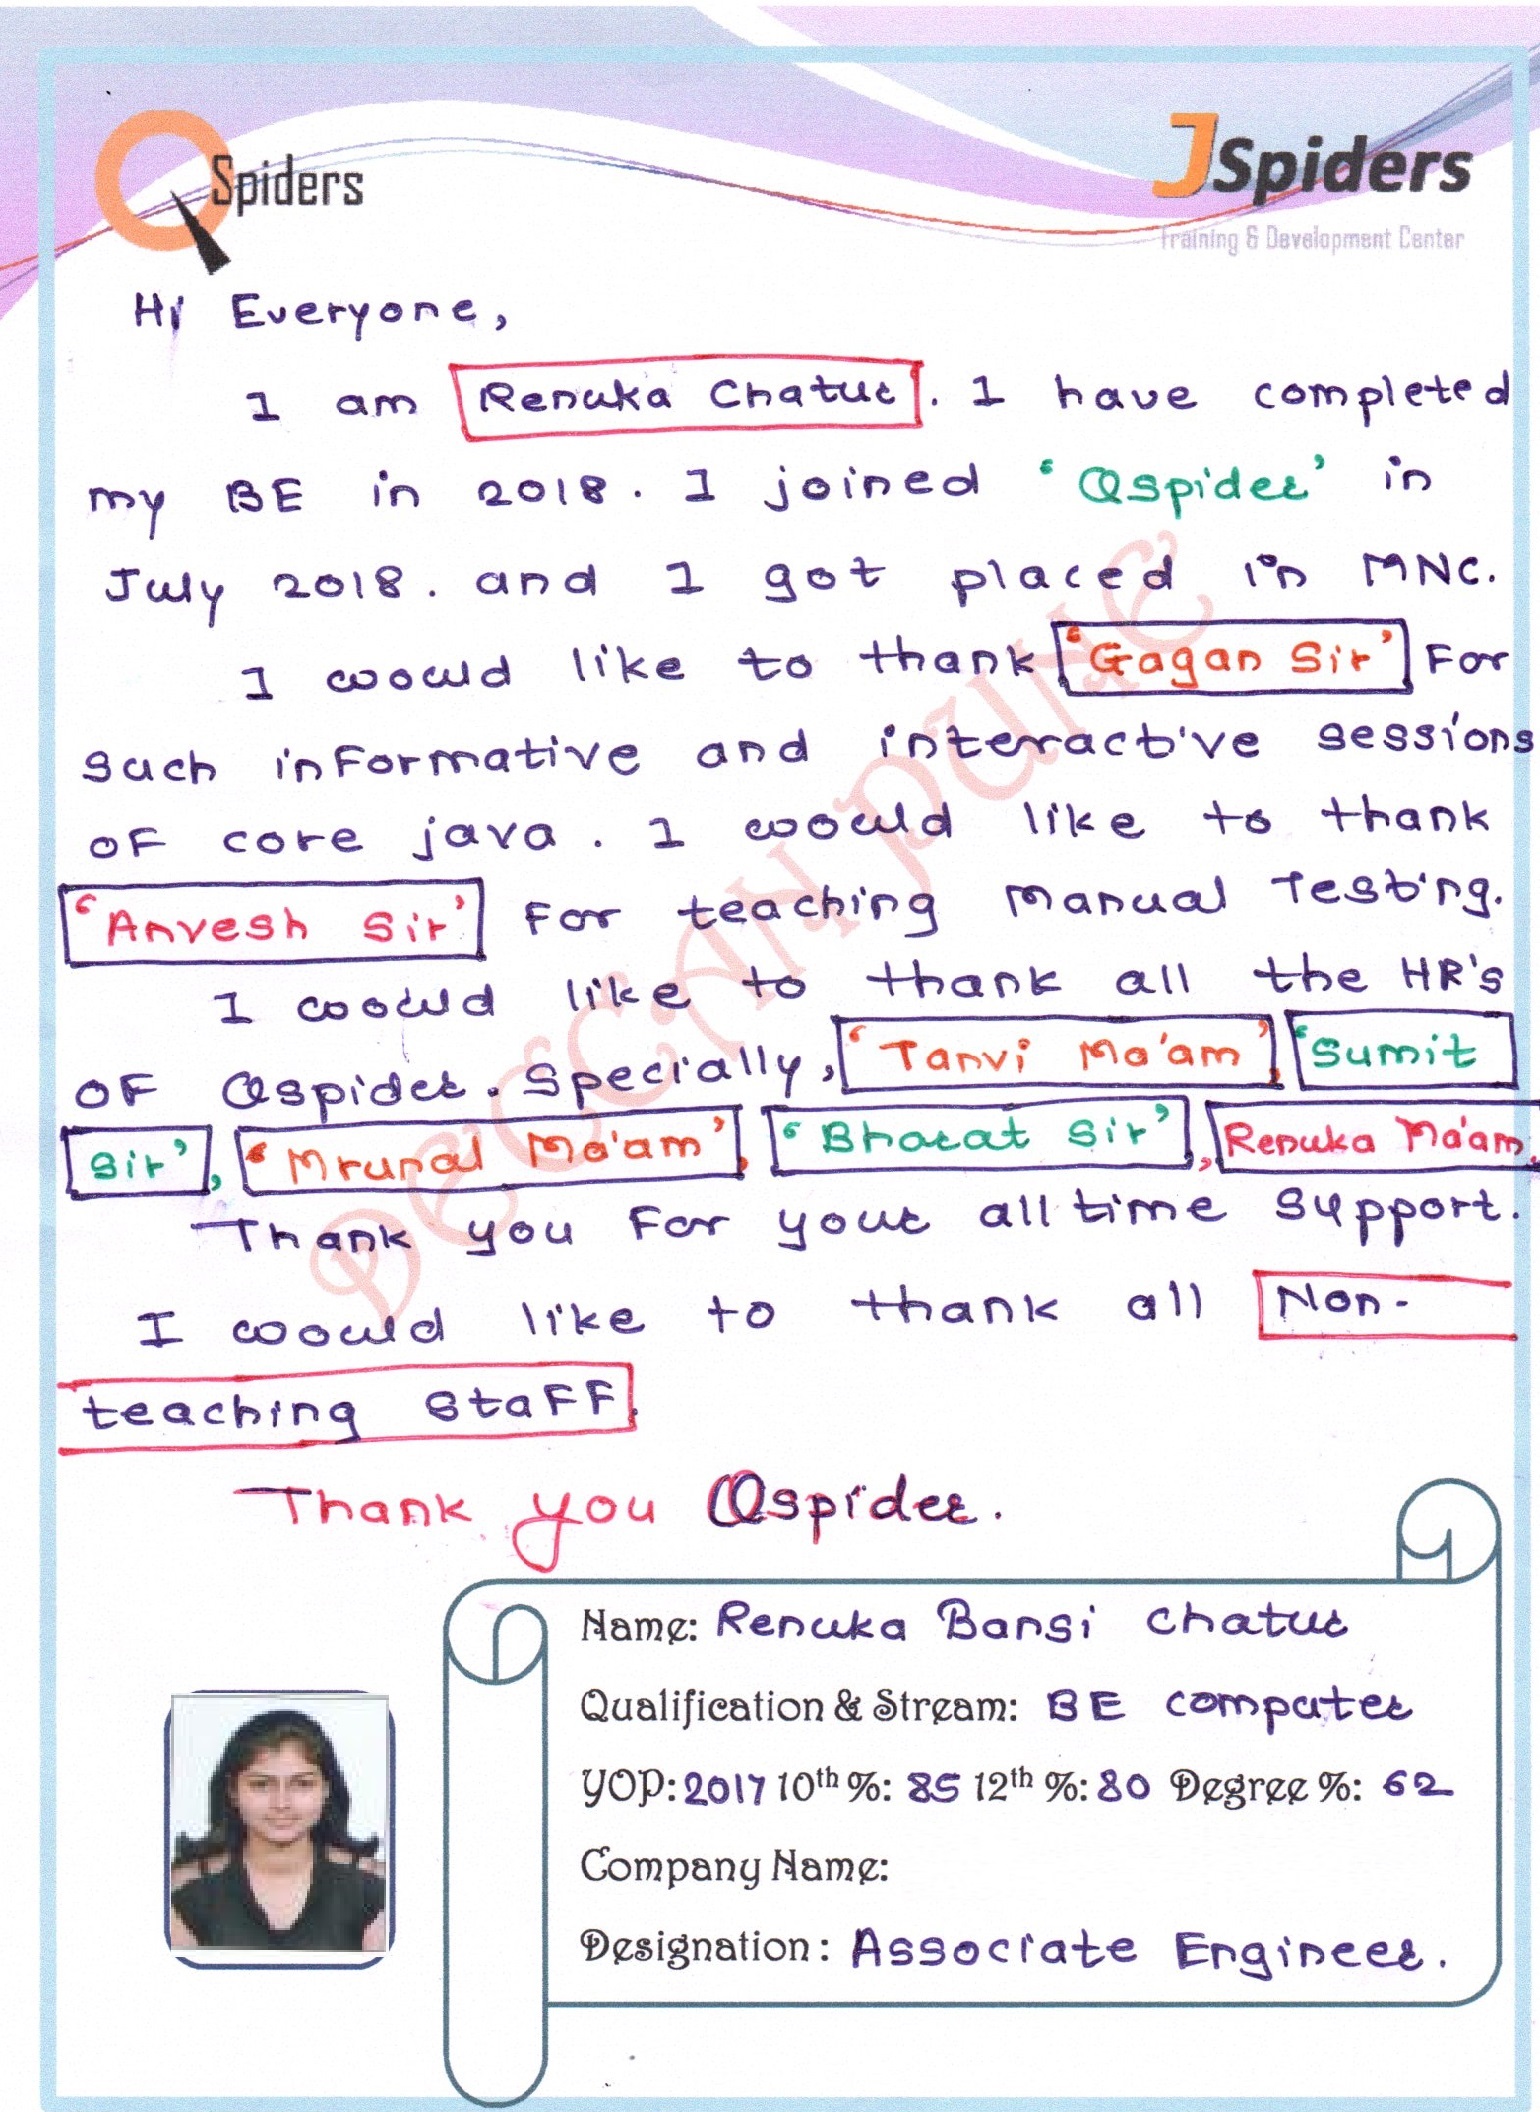 QSpiders
JSpiders
Training & Development Center
Hi Everyone,
I am Renuka Chatur. I have completed
my BE in 2018. I joined 'Qspider' in
July 2018. and I got placed in MNC.
I woould like to thank 'Gagan Sir' For
such informative and interactive sessions
of core java. I woould like to thank
'Anvesh Sir' For teaching Manual Testing.
I woould like to thank all the HR's
of Qspider. Specially, 'Tanvi Ma'am', 'Sumit
Sir', 'Mrunal Ma'am', 'Bharat Sir', Renuka Ma'am.
Thank you For your all time support.
I woould like to thank all Non-
teaching staff.
Thank you Qspider.
DECCAN PUNE
Name: Renuka Bansi Chatur
Qualification & Stream: BE computer
YOP: 2017 10th %: 85 12th %: 80 Degree %: 62
Company Name:
Designation: Associate Engineer.